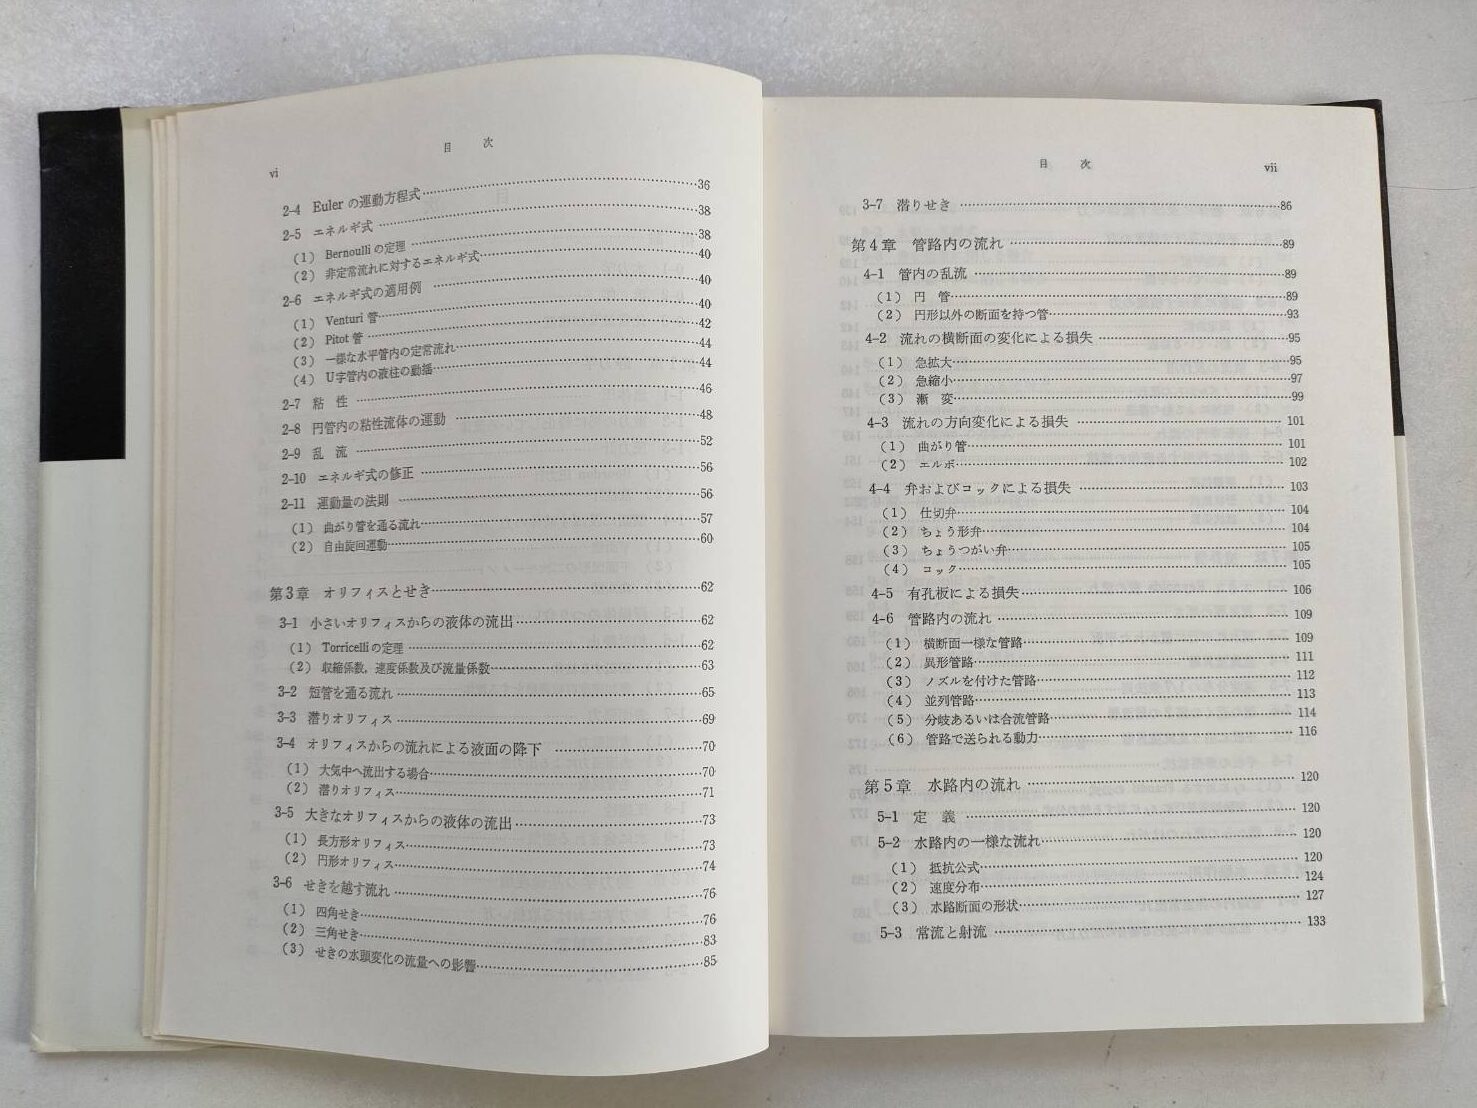 目 次
vi
2-4 Euler の運動方程式……36
2-5 エネルギ式……38
(1) Bernoulli の定理……38
(2) 非定常流れに対するエネルギ式……40
2-6 エネルギ式の適用例……40
(1) Venturi 管……40
(2) Pitot 管……42
(3) 一様な水平管内の定常流れ……44
(4) U字管内の液柱の動揺……44
2-7 粘 性……46
2-8 円管内の粘性流体の運動……48
2-9 乱 流……52
2-10 エネルギ式の修正……56
2-11 運動量の法則……56
(1) 曲がり管を通る流れ……57
(2) 自由旋回運動……60
第3章 オリフィスとせき……62
3-1 小さいオリフィスからの液体の流出……62
(1) Torricelli の定理……62
(2) 収縮係数，速度係数及び流量係数……63
3-2 短管を通る流れ……65
3-3 潜りオリフィス……69
3-4 オリフィスからの流れによる液面の降下……70
(1) 大気中へ流出する場合……70
(2) 潜りオリフィス……71
3-5 大きなオリフィスからの液体の流出……73
(1) 長方形オリフィス……73
(2) 円形オリフィス……74
3-6 せきを越す流れ……76
(1) 四角せき……76
(2) 三角せき……83
(3) せきの水頭変化の流量への影響……85
目 次
vii
3-7 潜りせき……86
第4章 管路内の流れ……89
4-1 管内の乱流……89
(1) 円 管……89
(2) 円形以外の断面を持つ管……93
4-2 流れの横断面の変化による損失……95
(1) 急拡大……95
(2) 急縮小……97
(3) 漸 変……99
4-3 流れの方向変化による損失……101
(1) 曲がり管……101
(2) エルボ……102
4-4 弁およびコックによる損失……103
(1) 仕切弁……104
(2) ちょう形弁……104
(3) ちょうつがい弁……105
(4) コック……105
4-5 有孔板による損失……106
4-6 管路内の流れ……109
(1) 横断面一様な管路……109
(2) 異形管路……111
(3) ノズルを付けた管路……112
(4) 並列管路……113
(5) 分岐あるいは合流管路……114
(6) 管路で送られる動力……116
第5章 水路内の流れ……120
5-1 定 義……120
5-2 水路内の一様な流れ……120
(1) 抵抗公式……120
(2) 速度分布……124
(3) 水路断面の形状……127
5-3 常流と射流……133